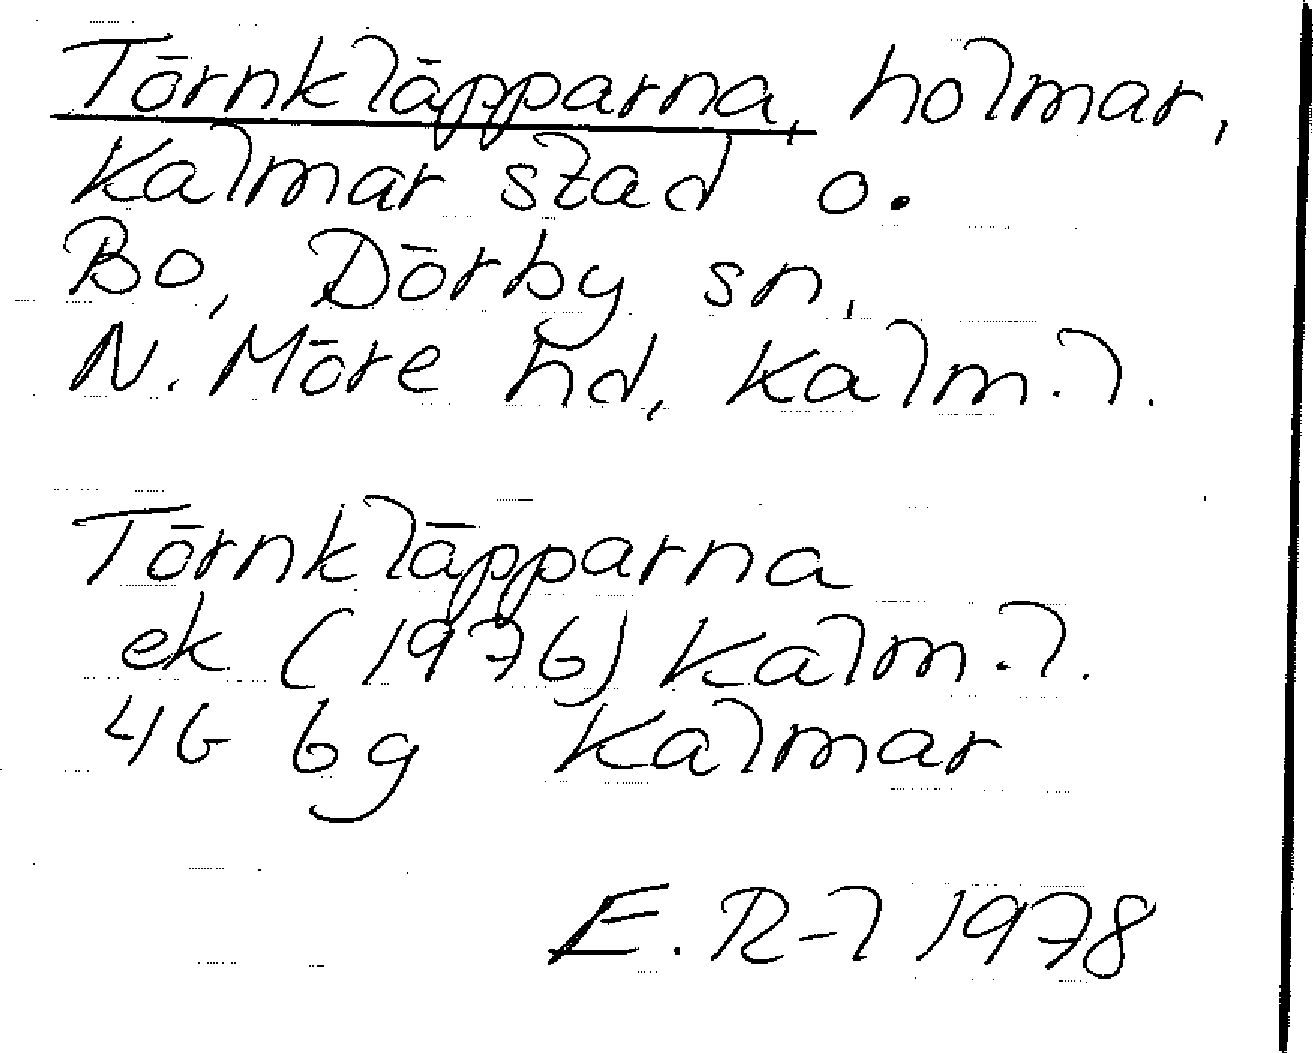 Törnkläpparna, holmar,
Kalmar stad o.
Bo, Dörby sn,
N. Möre hd, Kalm. l.
Törnkläpparna
ek (1976) Kalm. l.
4G 6g Kalmar
E. R-l 1978